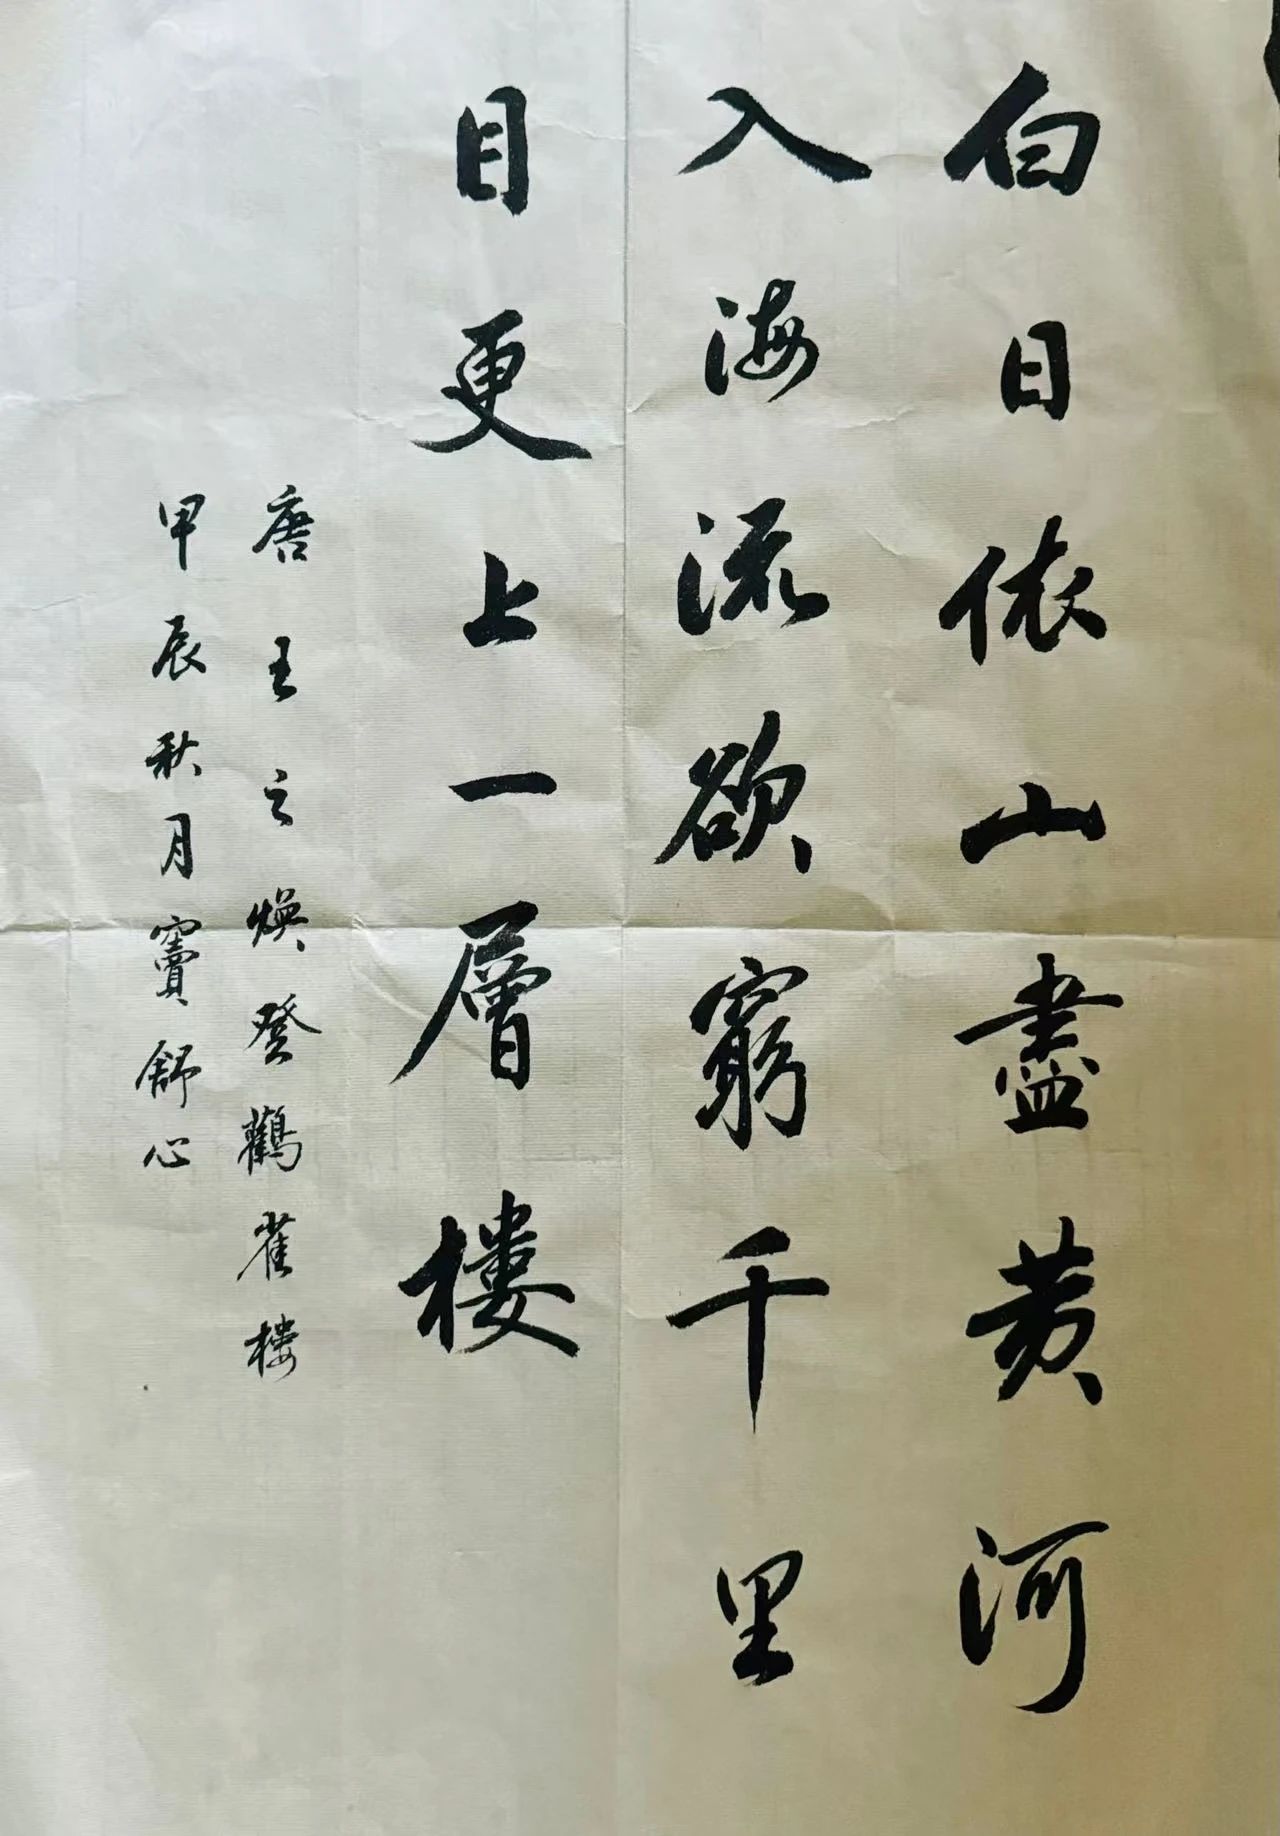 白日依山盡黄河
入海流欲窮千里
目更上一層樓
唐王之煥登鸛雀樓
甲辰秋月竇舒心